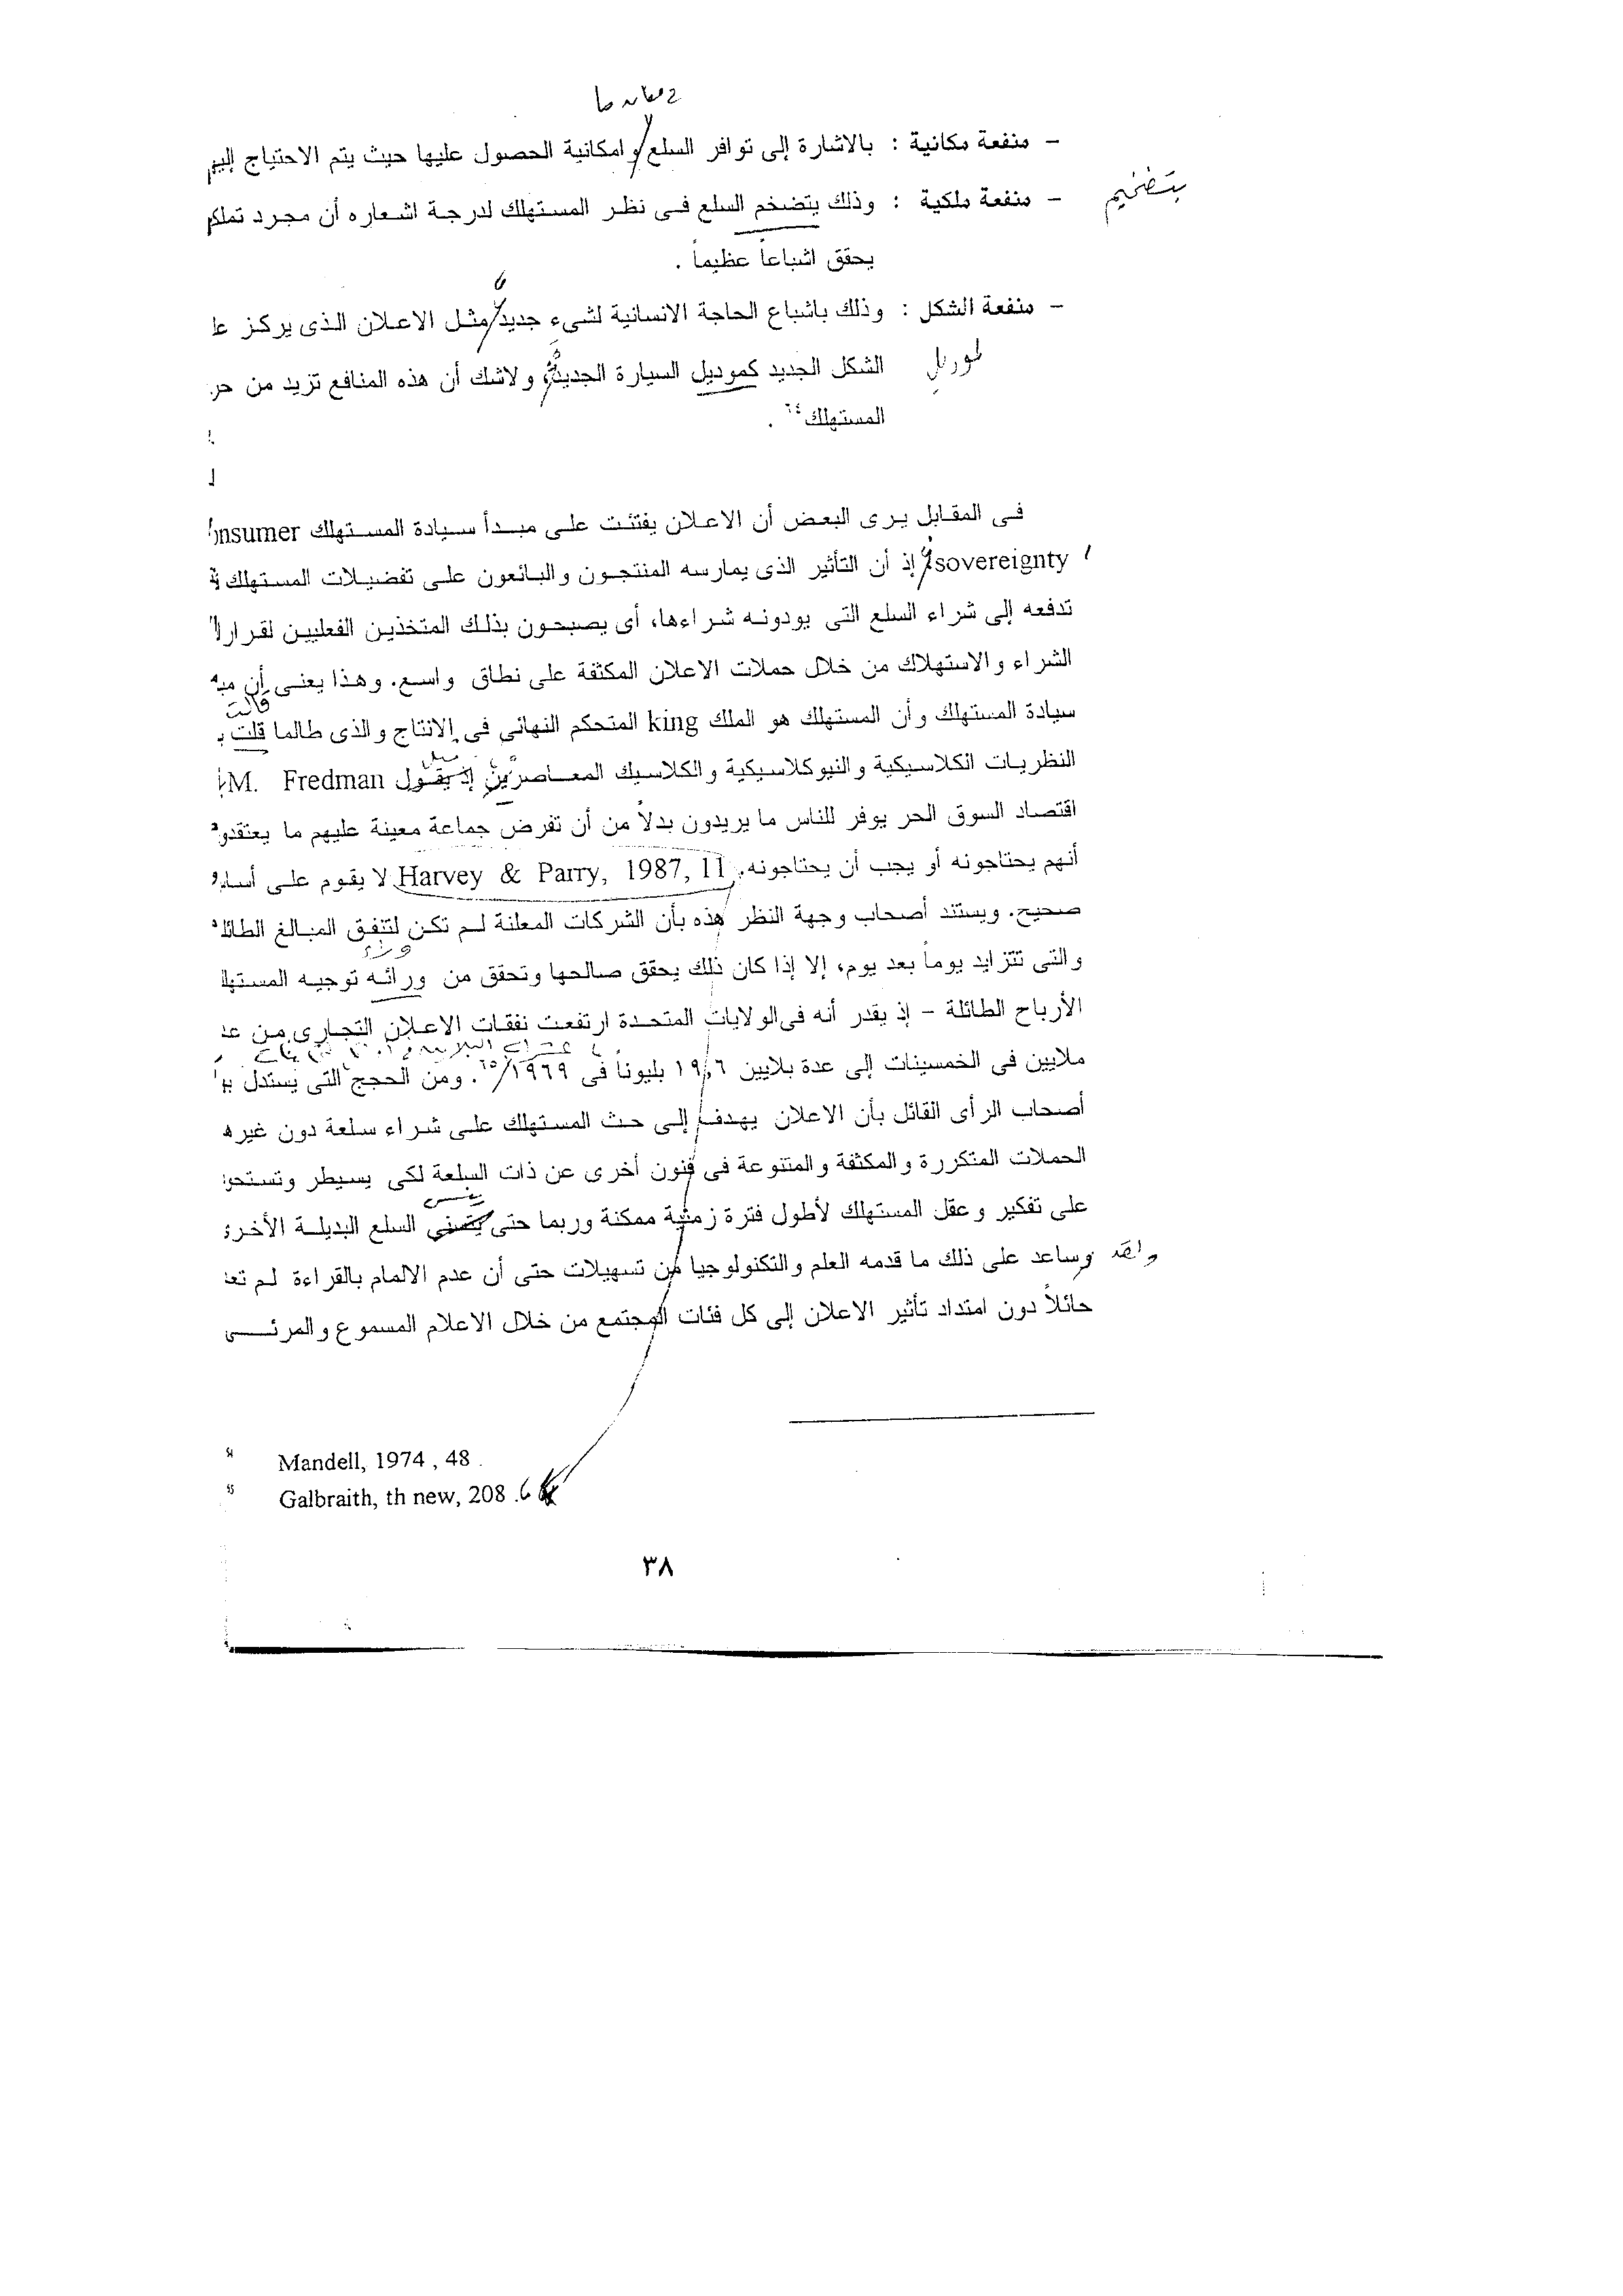 - منفعة مكانية : بالاشارة إلى توافر السلع وامكانية الحصول عليها حيث يتم الاحتياج
بتضخيم
- منفعة ملكية : وذلك يتضخم السلع فى نظر المستهلك لدرجة اشعاره أن مجرد
يحقق اشباعاً عظيماً .
- منفعة الشكل : وذلك باشباع الحاجة الانسانية لشىء جديد مثل الاعلان الذى يركز
الشكل الجديد كموديل السيارة الجديدة، ولاشك أن هذه المنافع تزيد من
المستهلك٦٤ .
فى المقابل يرى البعض أن الاعلان يفتئت على مبدأ سيادة المستهلك nsumer
sovereignty إذ أن التأثير الذى يمارسه المنتجون والبائعون على تفضيلات المستهلك
تدفعه إلى شراء السلع التى يودونه شراءها، أى يصبحون بذلك المتخذين الفعليين
الشراء والاستهلاك من خلال حملات الاعلان المكثفة على نطاق واسع. وهذا يعنى أن
قالت
سيادة المستهلك وأن المستهلك هو الملك king المتحكم النهائى فى الانتاج والذى طالما قلت
النظريات الكلاسيكية والنيوكلاسيكية والكلاسيك المعاصرين إذ يقول M. Fredman
اقتصاد السوق الحر يوفر للناس ما يريدون بدلاً من أن تفرض جماعة معينة عليهم ما
أنهم يحتاجونه أو يجب أن يحتاجونه. Harvey & Parry, 1987, 11 لا يقوم على
صحيح. ويستند أصحاب وجهة النظر هذه بأن الشركات المعلنة لم تكن لتنفق المبالغ
والتى تتزايد يوماً بعد يوم، إلا إذا كان ذلك يحقق صالحها وتحقق من ورائه توجيه
الأرباح الطائلة - إذ يقدر أنه فى الولايات المتحدة ارتفعت نفقات الاعلان التجارى من
ملايين فى الخمسينات إلى عدة بلايين ١٩,٦ بليوناً فى ١٩٦٩/٦٥. ومن الحجج التى يستدل
أصحاب الرأى القائل بأن الاعلان يهدف إلى حث المستهلك على شراء سلعة دون
الحملات المتكررة والمكثفة والمتنوعة فى فنون أخرى عن ذات السلعة لكى يسيطر
على تفكير وعقل المستهلك لأطول فترة زمنية ممكنة وربما حتى السلع البديلة
وساعد على ذلك ما قدمه العلم والتكنولوجيا من تسهيلات حتى أن عدم الالمام بالقراءة لم
حائلاً دون امتداد تأثير الاعلان إلى كل فئات المجتمع من خلال الاعلام المسموع
Mandell, 1974 , 48 .
Galbraith, th new, 208 .
٣٨